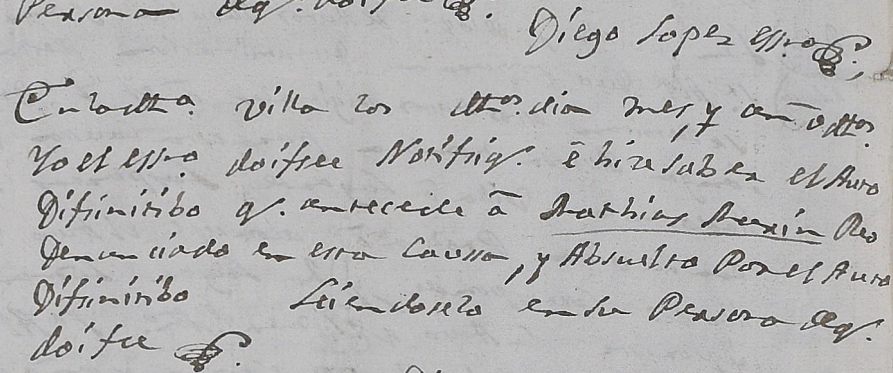 Persona deq.e doifee
Diego Lopez essno
En la dha. villa los dhos. dia mes, y año dhos.
Yo el essno. doifee Notifiq.e é hize saber el Auto
Difinitibo q.e antecede á Mathias Marin Reo
Denunciado en esta Caussa, y Absuelto Por el Auto
Difinitibo Leiendoselo en su Persona deq.e
doifee